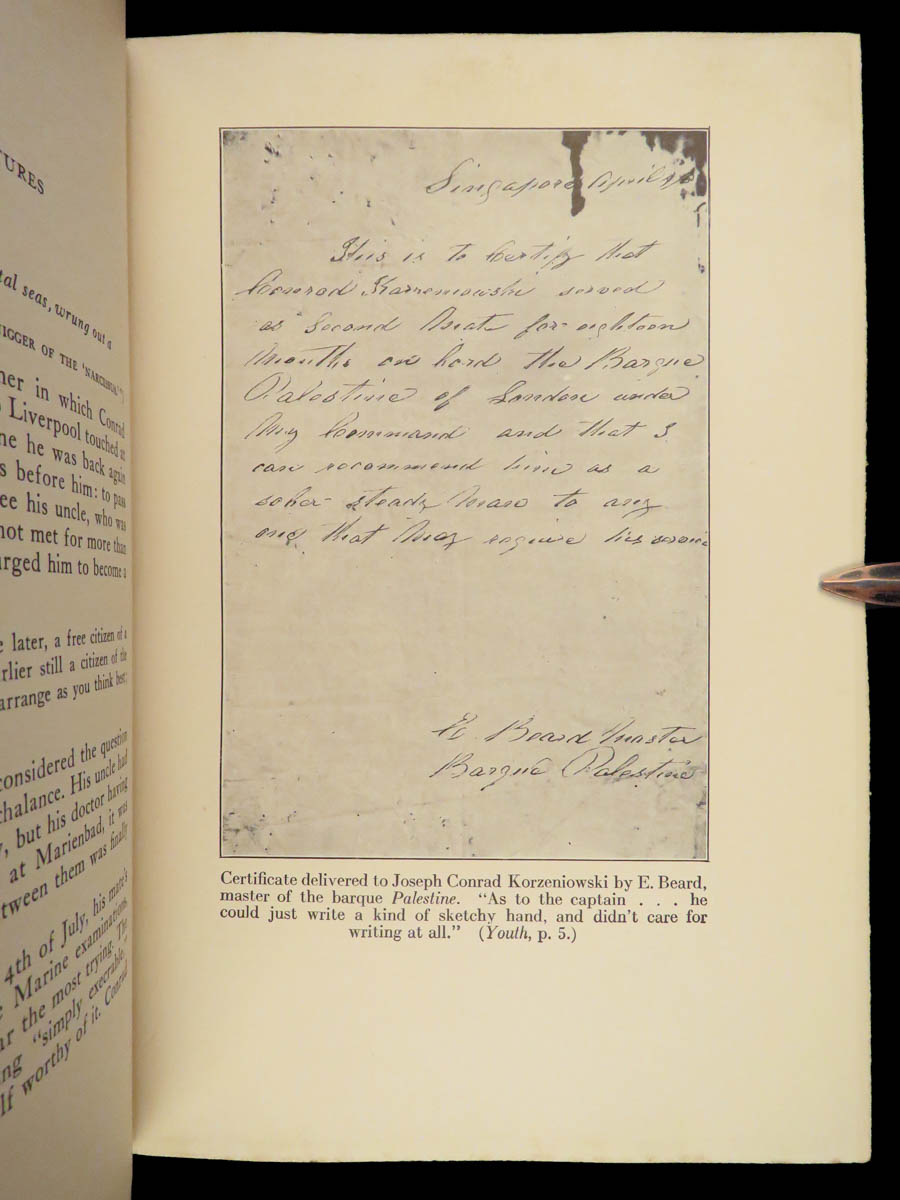 TURES
tal seas, wrung out a
NIGGER OF THE 'NARCISSUS.'")
her in which Conrad
o Liverpool touched at
me he was back again
s before him: to pass
ee his uncle, who was
not met for more than
urged him to become a
e later, a free citizen of a
arlier still a citizen of the
arrange as you think best;
considered the question
chalance. His uncle had
y, but his doctor having
at Marienbad, it was
tween them was finally
4th of July, his mate's
Marine examinations.
ar the most trying. The
ng "simply execrable,"
lf worthy of it. Conrad
Singapore April
This is to Certify that
Conrad Karzeniowski served
as Second Mate for eighteen
Months on bord the Barque
Palestine of London under
My Command and that I
can recommend him as a
sober steady Man to any
one that May require his service
E. Beard Master
Barque Palestine
Certificate delivered to Joseph Conrad Korzeniowski by E. Beard,
master of the barque Palestine. "As to the captain . . . he
could just write a kind of sketchy hand, and didn't care for
writing at all." (Youth, p. 5.)